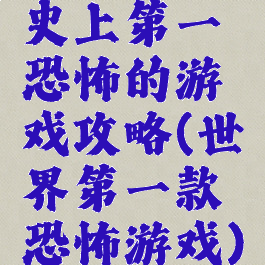 史上第一
恐怖的游
戏攻略(世
界第一款
恐怖游戏)